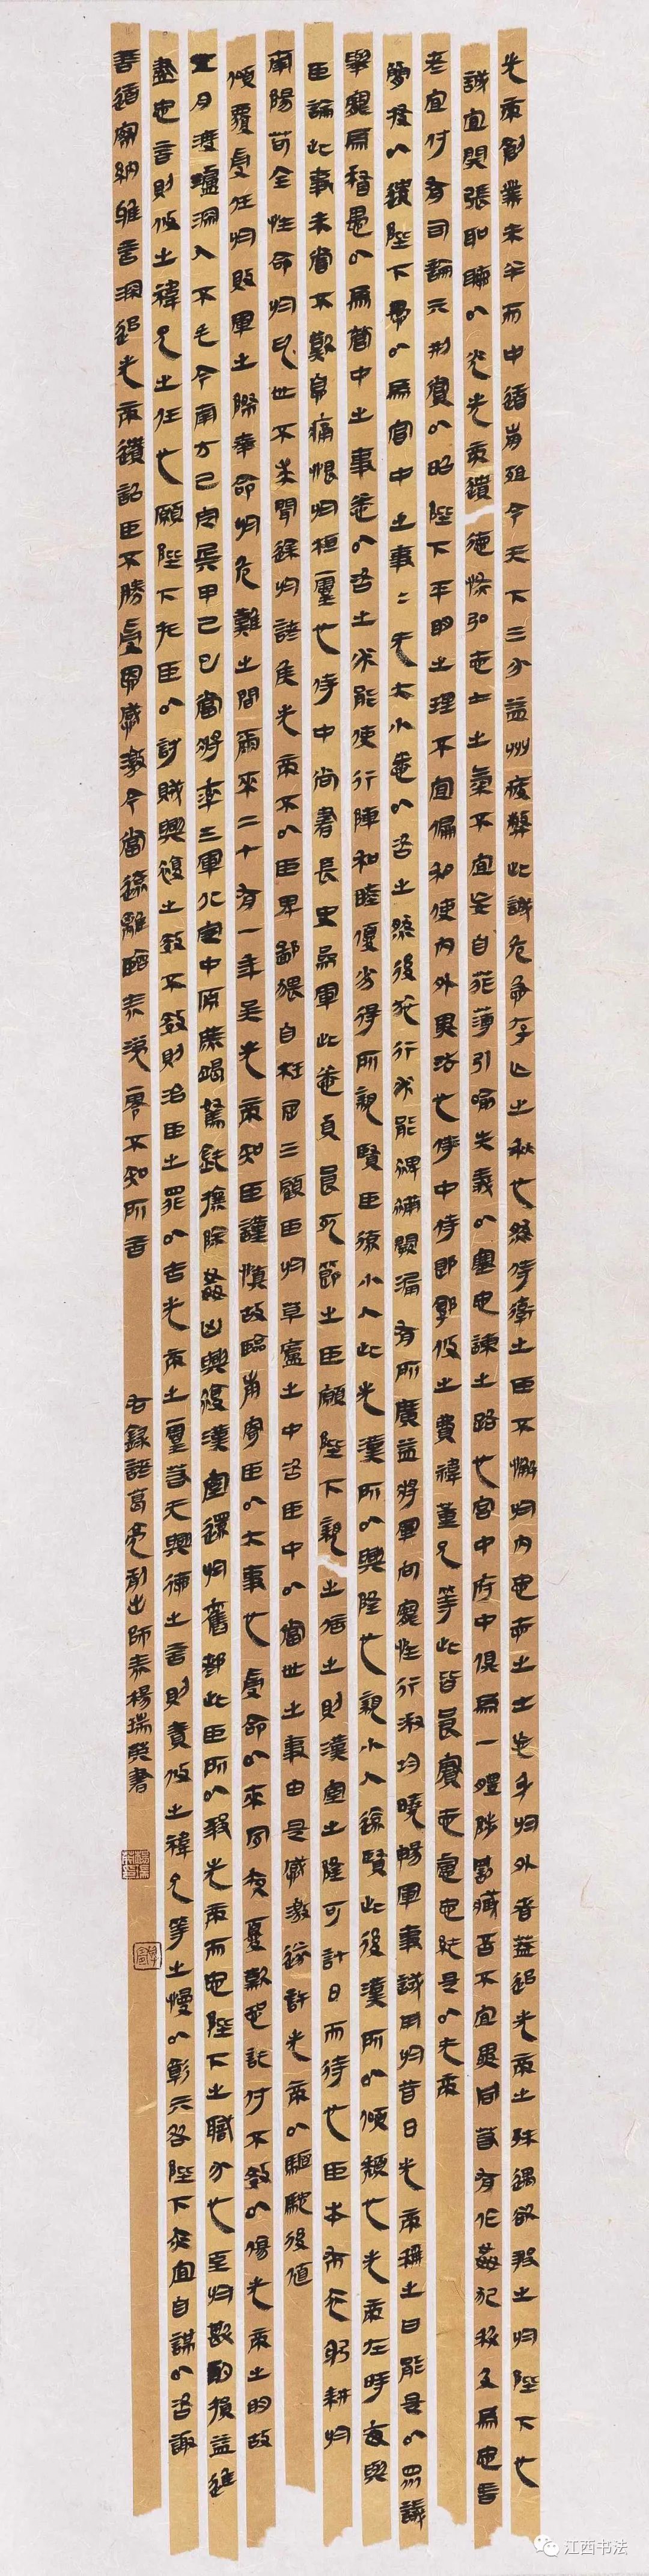 先帝創業未半而中道崩殂今天下三分益州疲弊此誠危急存亡之秋也然侍衛之臣不懈於内忠志之士忘身於外者蓋追先帝之殊遇欲報之於陛下也
誠宜開張聖聽以光先帝遺德恢弘志士之氣不宜妄自菲薄引喻失義以塞忠諫之路也宮中府中俱為一體陟罰臧否不宜異同若有作姦犯科及為忠善
者宜付有司論其刑賞以昭陛下平明之理不宜偏私使内外異法也侍中侍郎郭攸之費禕董允等此皆良實志慮忠純是以先帝
簡拔以遺陛下愚以為宮中之事事無大小悉以咨之然後施行必能裨補闕漏有所廣益將軍向寵性行淑均曉暢軍事試用於昔日先帝稱之曰能是以眾議
舉寵為督愚以為營中之事悉以咨之必能使行陣和睦優劣得所親賢臣遠小人此先漢所以興隆也親小人遠賢臣此後漢所以傾頹也先帝在時每與
臣論此事未嘗不歎息痛恨於桓靈也侍中尚書長史參軍此悉貞良死節之臣願陛下親之信之則漢室之隆可計日而待也臣本布衣躬耕於
南陽苟全性命於亂世不求聞達於諸侯先帝不以臣卑鄙猥自枉屈三顧臣於草廬之中咨臣中以當世之事由是感激遂許先帝以驅馳後值
傾覆受任於敗軍之際奉命於危難之間爾來二十有一年矣先帝知臣謹慎故臨崩寄臣以大事也受命以來夙夜憂歎恐託付不效以傷先帝之明故
五月渡瀘深入不毛今南方已定兵甲已足當獎率三軍北定中原庶竭駑鈍攘除姦凶興復漢室還於舊都此臣所以報先帝而忠陛下之職分也至於斟酌損益進
盡忠言則攸之禕允之任也願陛下托臣以討賊興復之效不效則治臣之罪以告先帝之靈若無興德之言則責攸之禕允等之慢以彰其咎陛下亦宜自謀以咨諏
善道察納雅言深追先帝遺詔臣不勝受恩感激今當遠離臨表涕零不知所言
右錄諸葛亮前出師表楊瑞英書
江西书法